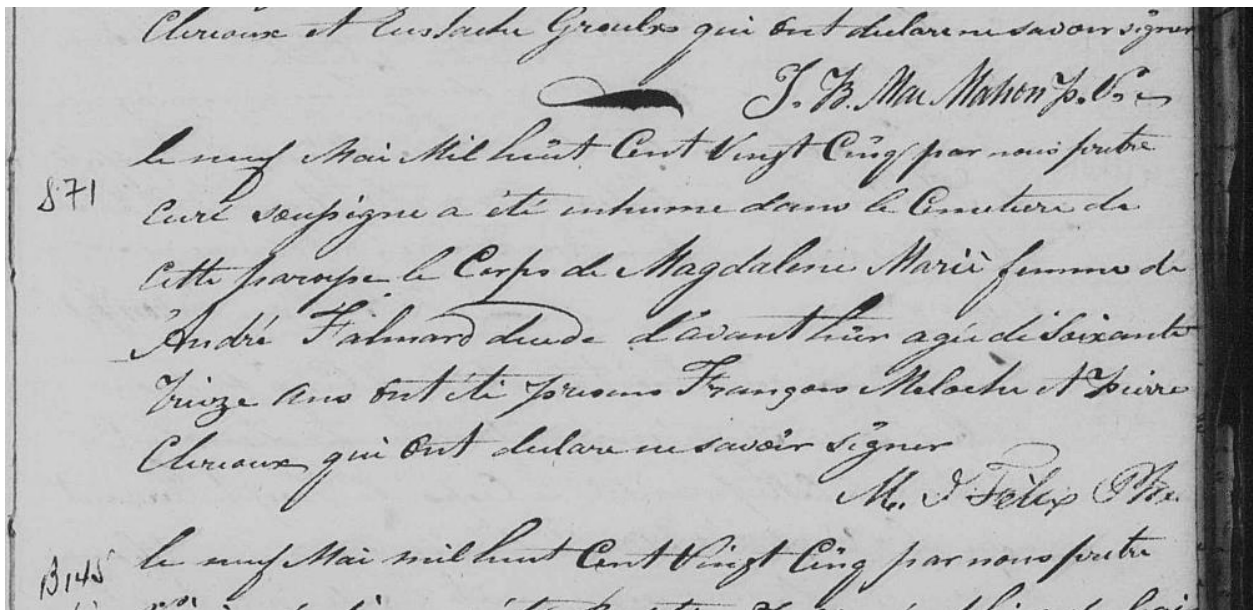 Clerioux et Eustache Groulx qui ont declare ne savoir signer
J. B. Mac Mahon p. V.
le neuf Mai Mil huit Cent Vingt Cinq par nous pretre
S71
curé soussigne a été inhume dans le Cemetiere de
cette paroisse le Corps de Magdalene Marié femme de
André Falmard decede d'avant hier agée de Soixante
Treize ans ont été presens François Meloche et pierre
Clerioux qui Ont declare ne savoir signer
M. J Felix Ptre
B145
le neuf Mai mil huit Cent Vingt Cinq par nous pretre